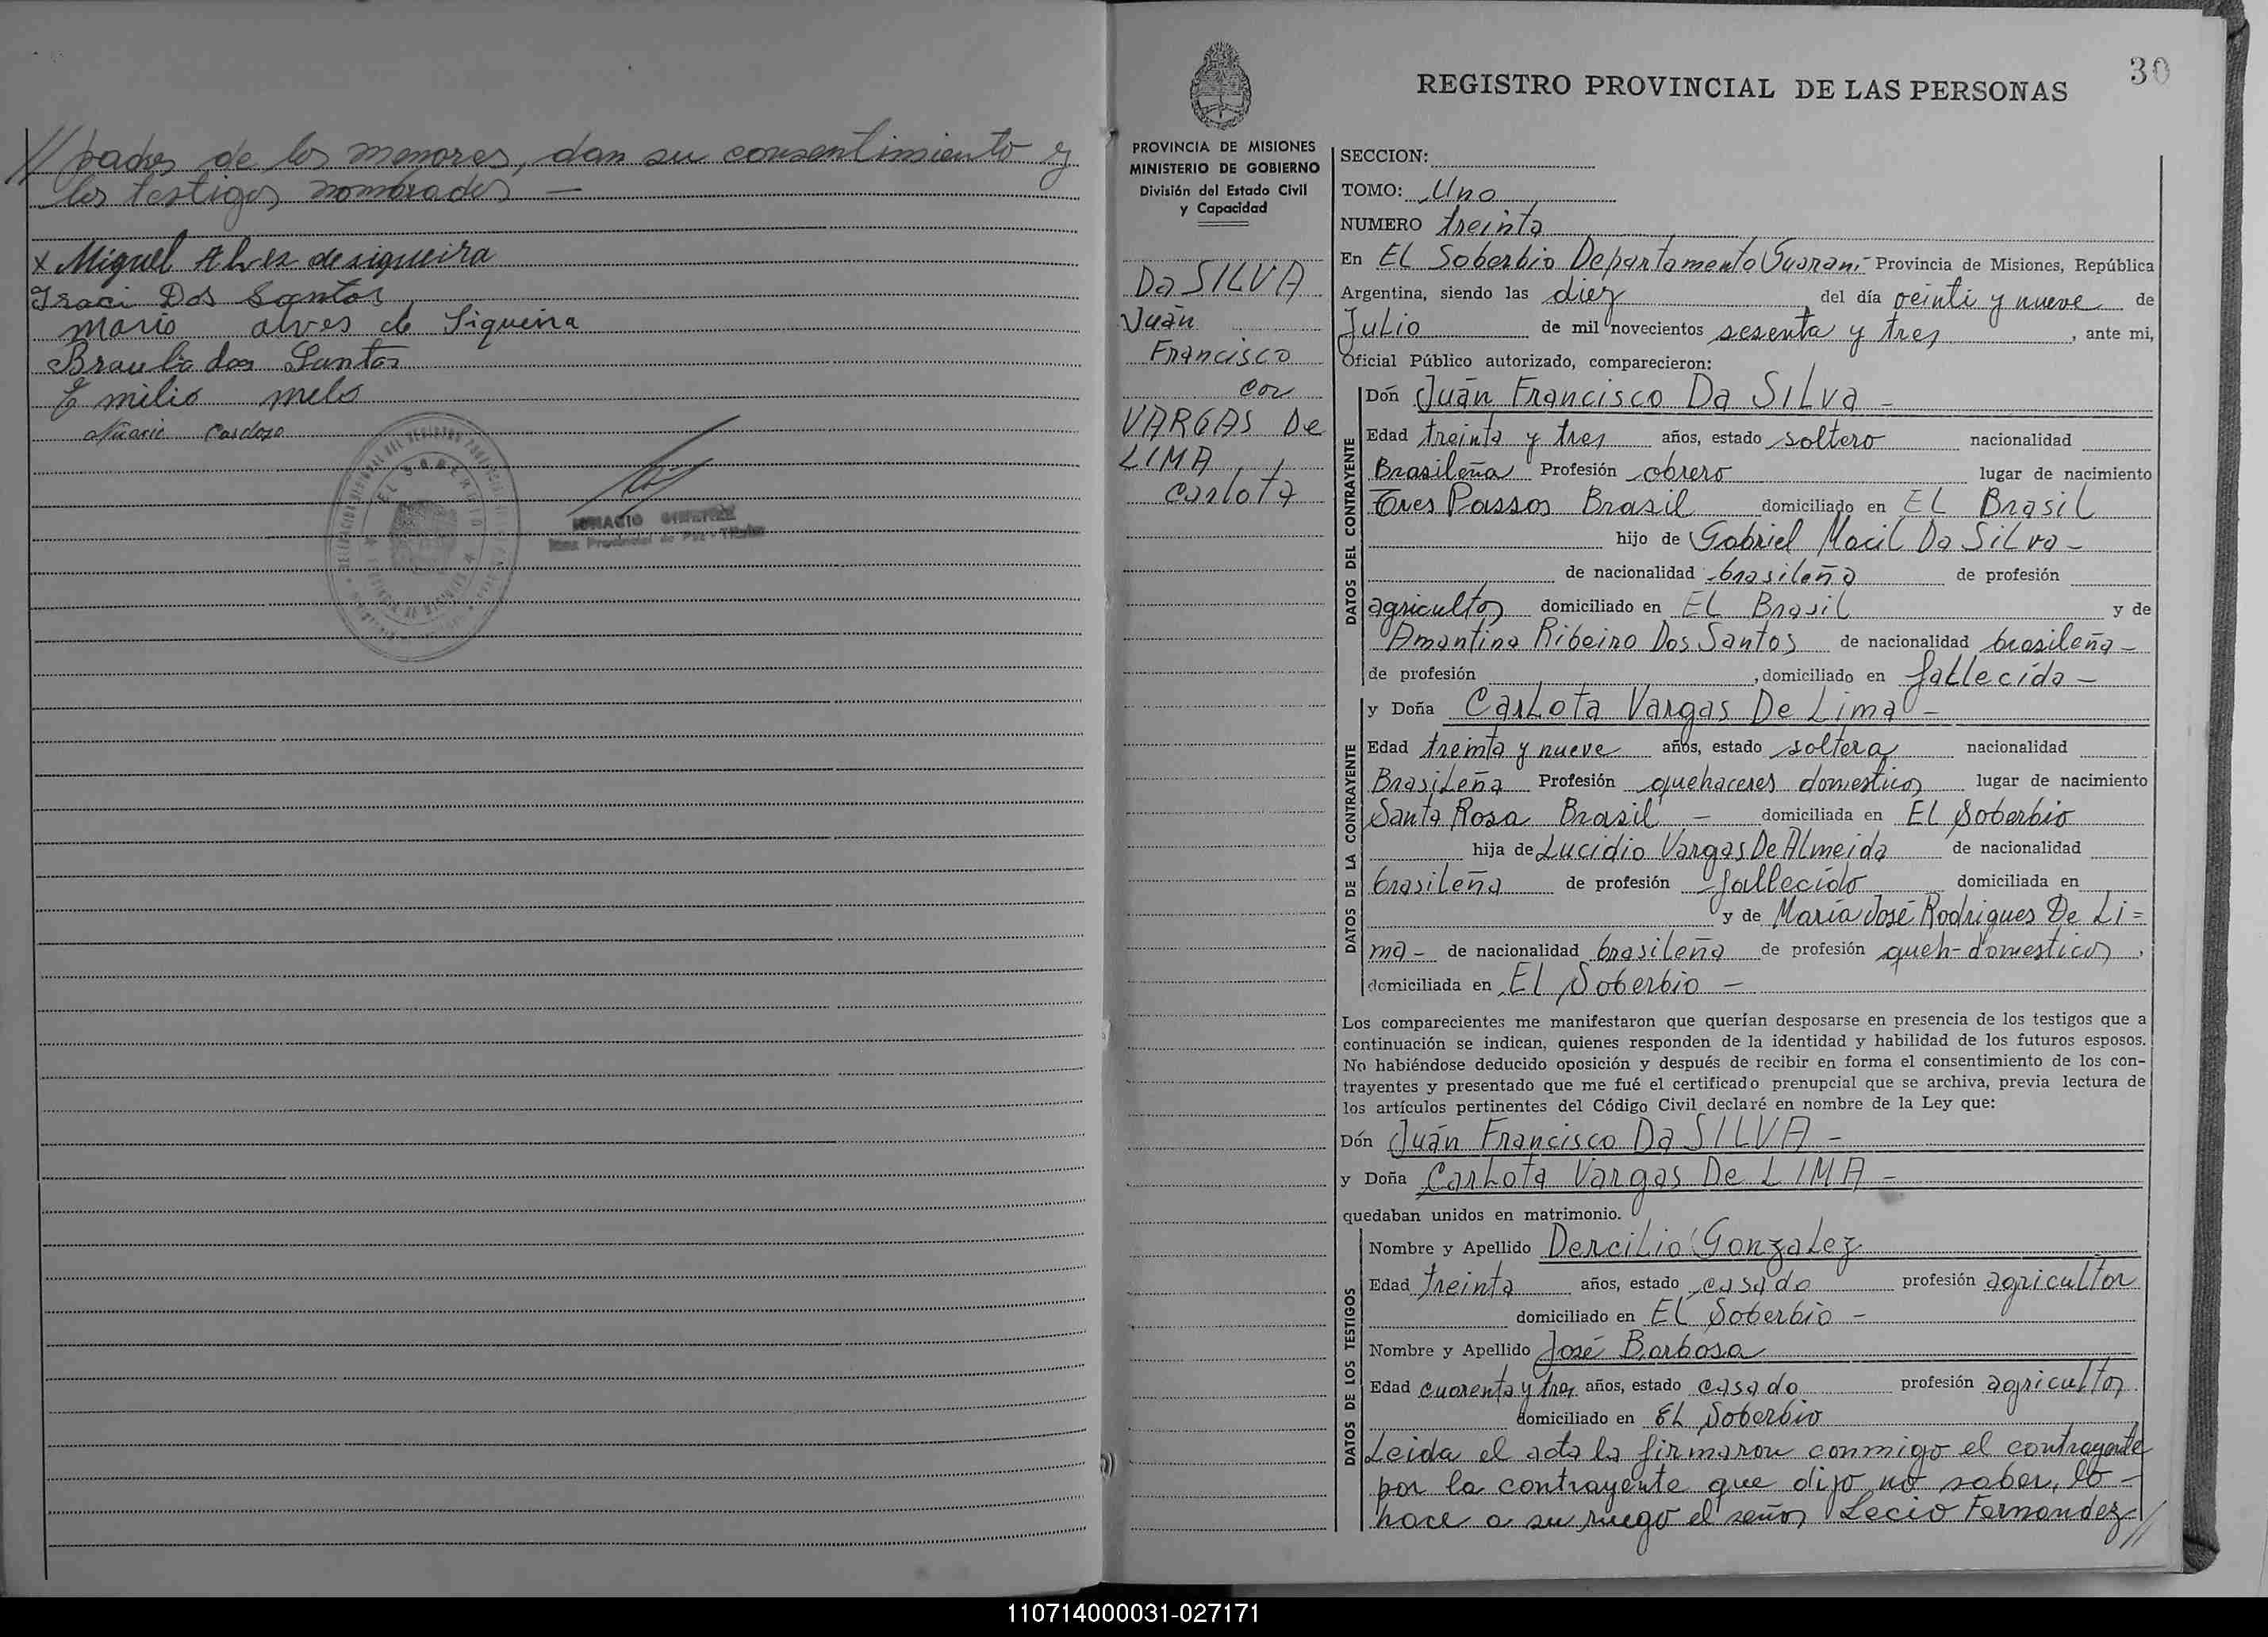 // padres de los menores, dan su consentimiento y
los testigos nombrados —
x Miguel Alves de siqueira
Iraci Dos Santos
Mario alves de Siqueira
Braulia dos Santos
Emilio melo
Cardozo
EL SOBERBIO
IGNACIO
Juez Provincial de Paz - Titular
30
REGISTRO PROVINCIAL DE LAS PERSONAS
PROVINCIA DE MISIONES
MINISTERIO DE GOBIERNO
División del Estado Civil
y Capacidad
Da SILVA
Juan
Francisco
con
VARGAS De
LIMA
Carlota
SECCION:
TOMO: Uno
NUMERO treinta
En El Soberbio Departamento Guaraní Provincia de Misiones, República
Argentina, siendo las diez del día veinti y nueve de
Julio de mil novecientos sesenta y tres, ante mi,
Oficial Público autorizado, comparecieron:
DATOS DEL CONTRAYENTE
Dón Juan Francisco Da Silva —
Edad treinta y tres años, estado soltero nacionalidad
Brasileña Profesión obrero lugar de nacimiento
Tres Passos Brasil domiciliado en El Brasil
hijo de Gabriel Macil Da Silva —
de nacionalidad brasileña de profesión
agricultor domiciliado en El Brasil y de
Amantina Ribeiro Dos Santos de nacionalidad brasileña —
de profesión , domiciliado en fallecida —
DATOS DE LA CONTRAYENTE
y Doña Carlota Vargas De Lima —
Edad treinta y nueve años, estado soltera nacionalidad
Brasileña Profesión quehaceres domesticos lugar de nacimiento
Santa Rosa Brasil — domiciliada en El Soberbio
hija de Lucidio Vargas De Almeida de nacionalidad
brasileña de profesión fallecido domiciliada en
y de María José Rodrigues De Li=
ma — de nacionalidad brasileña de profesión queh-domesticos,
domiciliada en El Soberbio —
Los comparecientes me manifestaron que querían desposarse en presencia de los testigos que a
continuación se indican, quienes responden de la identidad y habilidad de los futuros esposos.
No habiéndose deducido oposición y después de recibir en forma el consentimiento de los con-
trayentes y presentado que me fué el certificado prenupcial que se archiva, previa lectura de
los artículos pertinentes del Código Civil declaré en nombre de la Ley que:
Dón Juan Francisco Da SILVA —
y Doña Carlota Vargas De LIMA —
quedaban unidos en matrimonio.
DATOS DE LOS TESTIGOS
Nombre y Apellido Dercilio Gonzalez
Edad treinta años, estado casado profesión agricultor
domiciliado en El Soberbio —
Nombre y Apellido José Barbosa
Edad cuarenta y tres años, estado casado profesión agricultor
domiciliado en El Soberbio
Leida el acta la firmaron conmigo el contrayente
por la contrayente que dijo no saber, lo —
hace a su ruego el señor Lecio Fernandez //
110714000031-027171